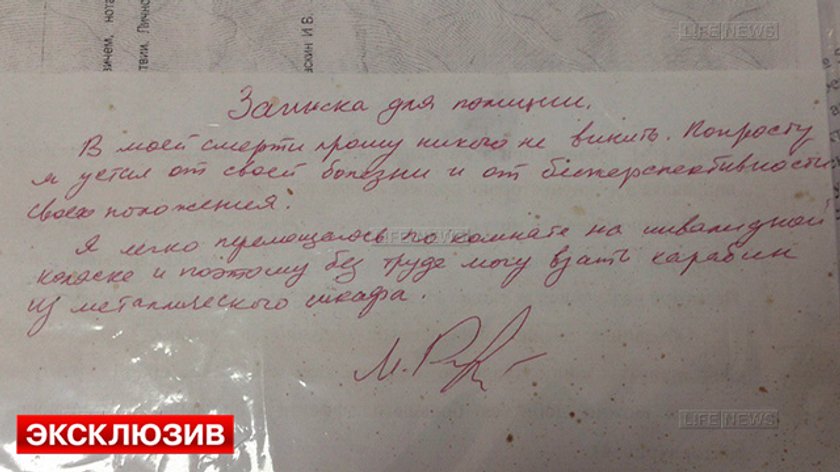 вичем, нота
ствии. Лично
аскин И В.
LIFE NEWS
Записка для полиции.
В моей смерти прошу никого не винить. Попросту
я устал от своей болезни и от бесперспективности
своего положения.
LIFE NEWS
Я легко перемещаюсь по комнате на инвалидной
коляске и поэтому без труда могу взять карабин
из металлического шкафа.
М.
LIFE NEWS
ЭКСКЛЮЗИВ